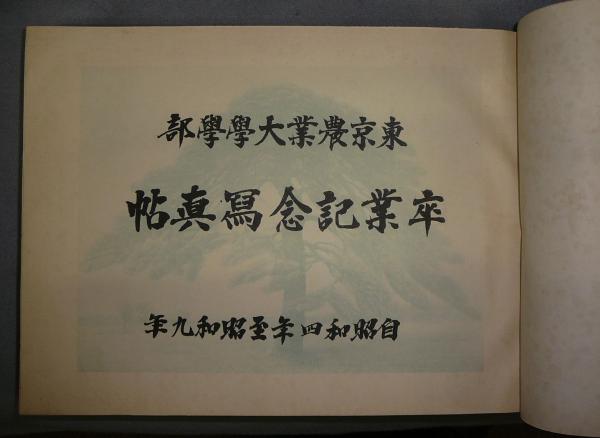 東京農業大學學部
卒業記念寫眞帖
自昭和四年至昭和九年